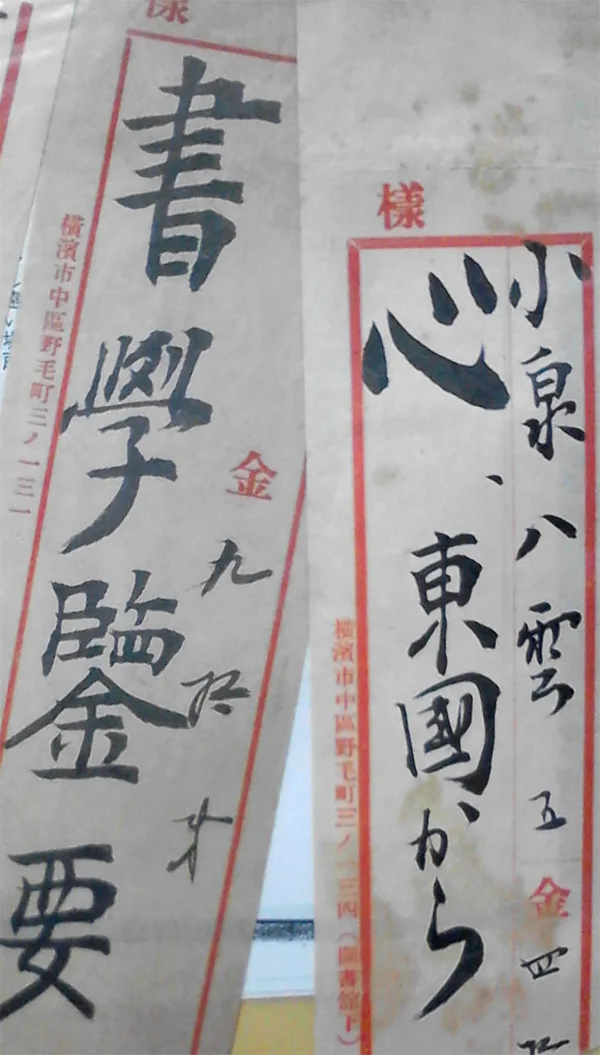 樣
小泉八雲 五
金 四拾
心、東國から
橫濱市中區野毛町三ノ一三四(圖書館下)
樣
金 九拾
書學鑒要
橫濱市中區野毛町三ノ一三一